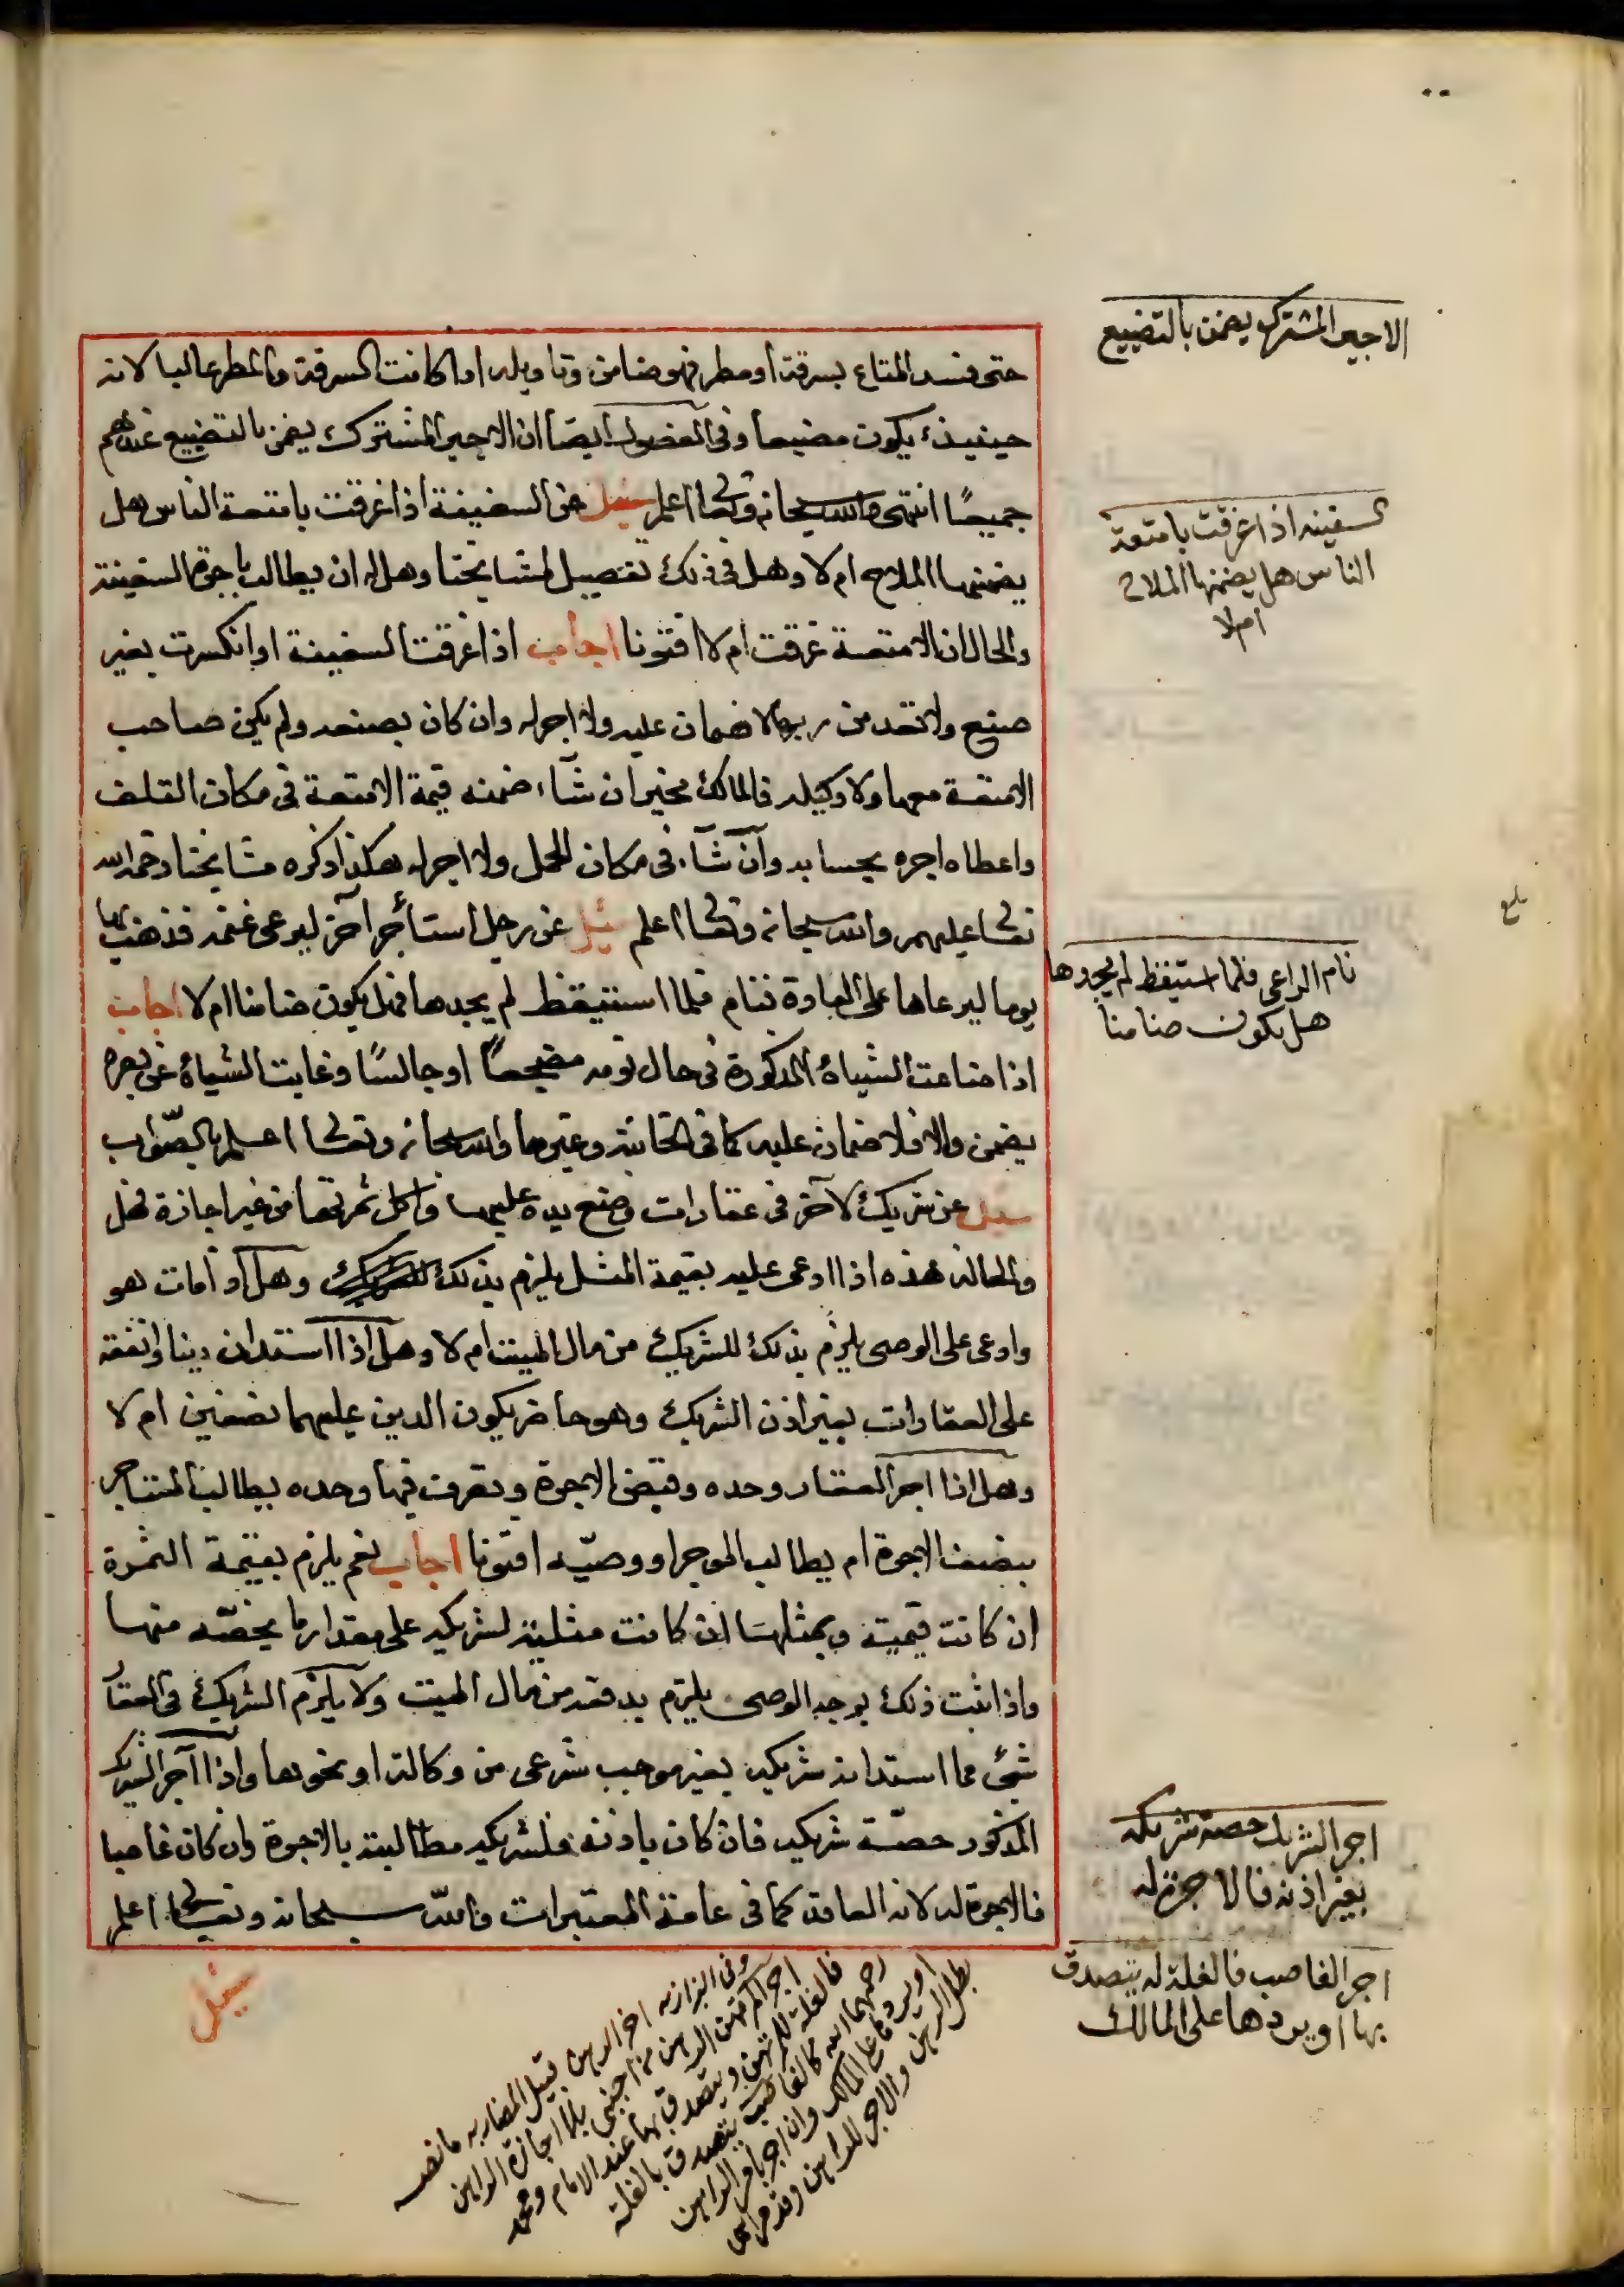 حتى فسد المتاع بسرقة او مطر فهو ضامن وتاويله اذا كانت السرقة والمطر غالبا لانه
حينيذ يكون مضيعا وفى الفصول ايضا ان الاجير المشترك يضمن بالتضييع عندهم
جميعًا انتهى والله سبحانه وتعالى اعلم سئل عن السفينة اذا غرقت بامتعة الناس هل
يضمنها الملاح ام لا وهل فى ذلك تفصيل لمشايخنا وهل له ان يطالب باجرة السفينة
والحال ان الامتعة غرقت ام لا افتونا اجاب اذا غرقت السفينة او انكسرت بغير
صنع ولا تعد من ربها لا ضمان عليه ولا اجر له وان كان بصنعه ولم يكن صاحب
الامتعة معها ولا وكيله فالمالك مخير ان شآء ضمنه قيمة الامتعة فى مكان التلف
واعطاه اجره بحسابه وان شآء فى مكان الحمل ولا اجر له هكذا ذكره مشايخنا رحمة الله
تعالى عليهم والله سبحانه وتعالى اعلم سئل عن رجل استأجر آخر ليرعى غنمه فذهب بها
يوما ليرعاها على العادة فنام فلما استيقظ لم يجدها فهل يكون ضامنا ام لا اجاب
اذا ضاعت الشياه المذكورة فى حال نومه مضجعًا او جالسًا وغابت الشياه عن بصره
يضمن والا فلا ضمان عليه كما فى الخانية وغيرها والله سبحانه وتعالى اعلم بالصّواب
سئل عن شريك لآخر فى عقارات وضع يده عليها واكل ثمرتها من غير اجازة فهل
والحالة هذه اذا ادعى عليه بقيمة المثل يلزم بذلك للشريك وهل اذا مات هو
وادعى على الوصى يلزم بذلك للشريك من مال الميت ام لا وهل اذا استدان دينا وانفقه
على العقارات بغير اذن الشريك وهو حاضر يكون الدين عليهما نصفين ام لا
وهل اذا اجر العقار وحده وقبض الاجرة وتصرف فيها وحده يطالب المستاجر
بنصف الاجرة ام يطالب الموجر او وصيّه افتونا اجاب نعم يلزم بقيمة الثمرة
ان كانت قيمية وبمثلها ان كانت مثلية لشريكه على مقدار ما يخصّه منها
واذا ثبت ذلك بوجه الوصى يلزم بدفعه من مال الميت ولا يلزم الشريك فى العقار
شئ مما استدانه شريكه بغير موجب شرعى من وكالة او نحوها واذا آجر الشريك
المذكور حصّة شريكه فان كان باذنه فلشريكه مطالبته بالاجرة وان كان غاصبا
فالاجرة له لانه العاقد كما فى عامة المعتبرات والله سبحانه وتعالى اعلم
سئل
الاجير المشترك يضمن بالتضييع
السفينه اذا غرقت بامتعة
الناس هل يضمنها الملاح
ام لا
بلغ
نام الراعى فلما استيقظ لم يجدها
هل يكون ضامنا
اجر الشريك حصة شريكه
بغير اذنه فالاجرة له
اجر الغاصب فالغلة له يتصدق
بها او يردها على المالك
وفى البزازيه اخر الرهن قبيل المضاربه ما نصه
اجر المرتهن الرهن من اجنبى بلا اجازة الراهن
فالغلة للمرتهن ويتصدق بها عند الامام ومحمد
رحمهما الله كالغاصب يتصدق بالغلة
او يردها على المالك وان اجر بامر الراهن
بطل الرهن والاجر للراهن وقد مر